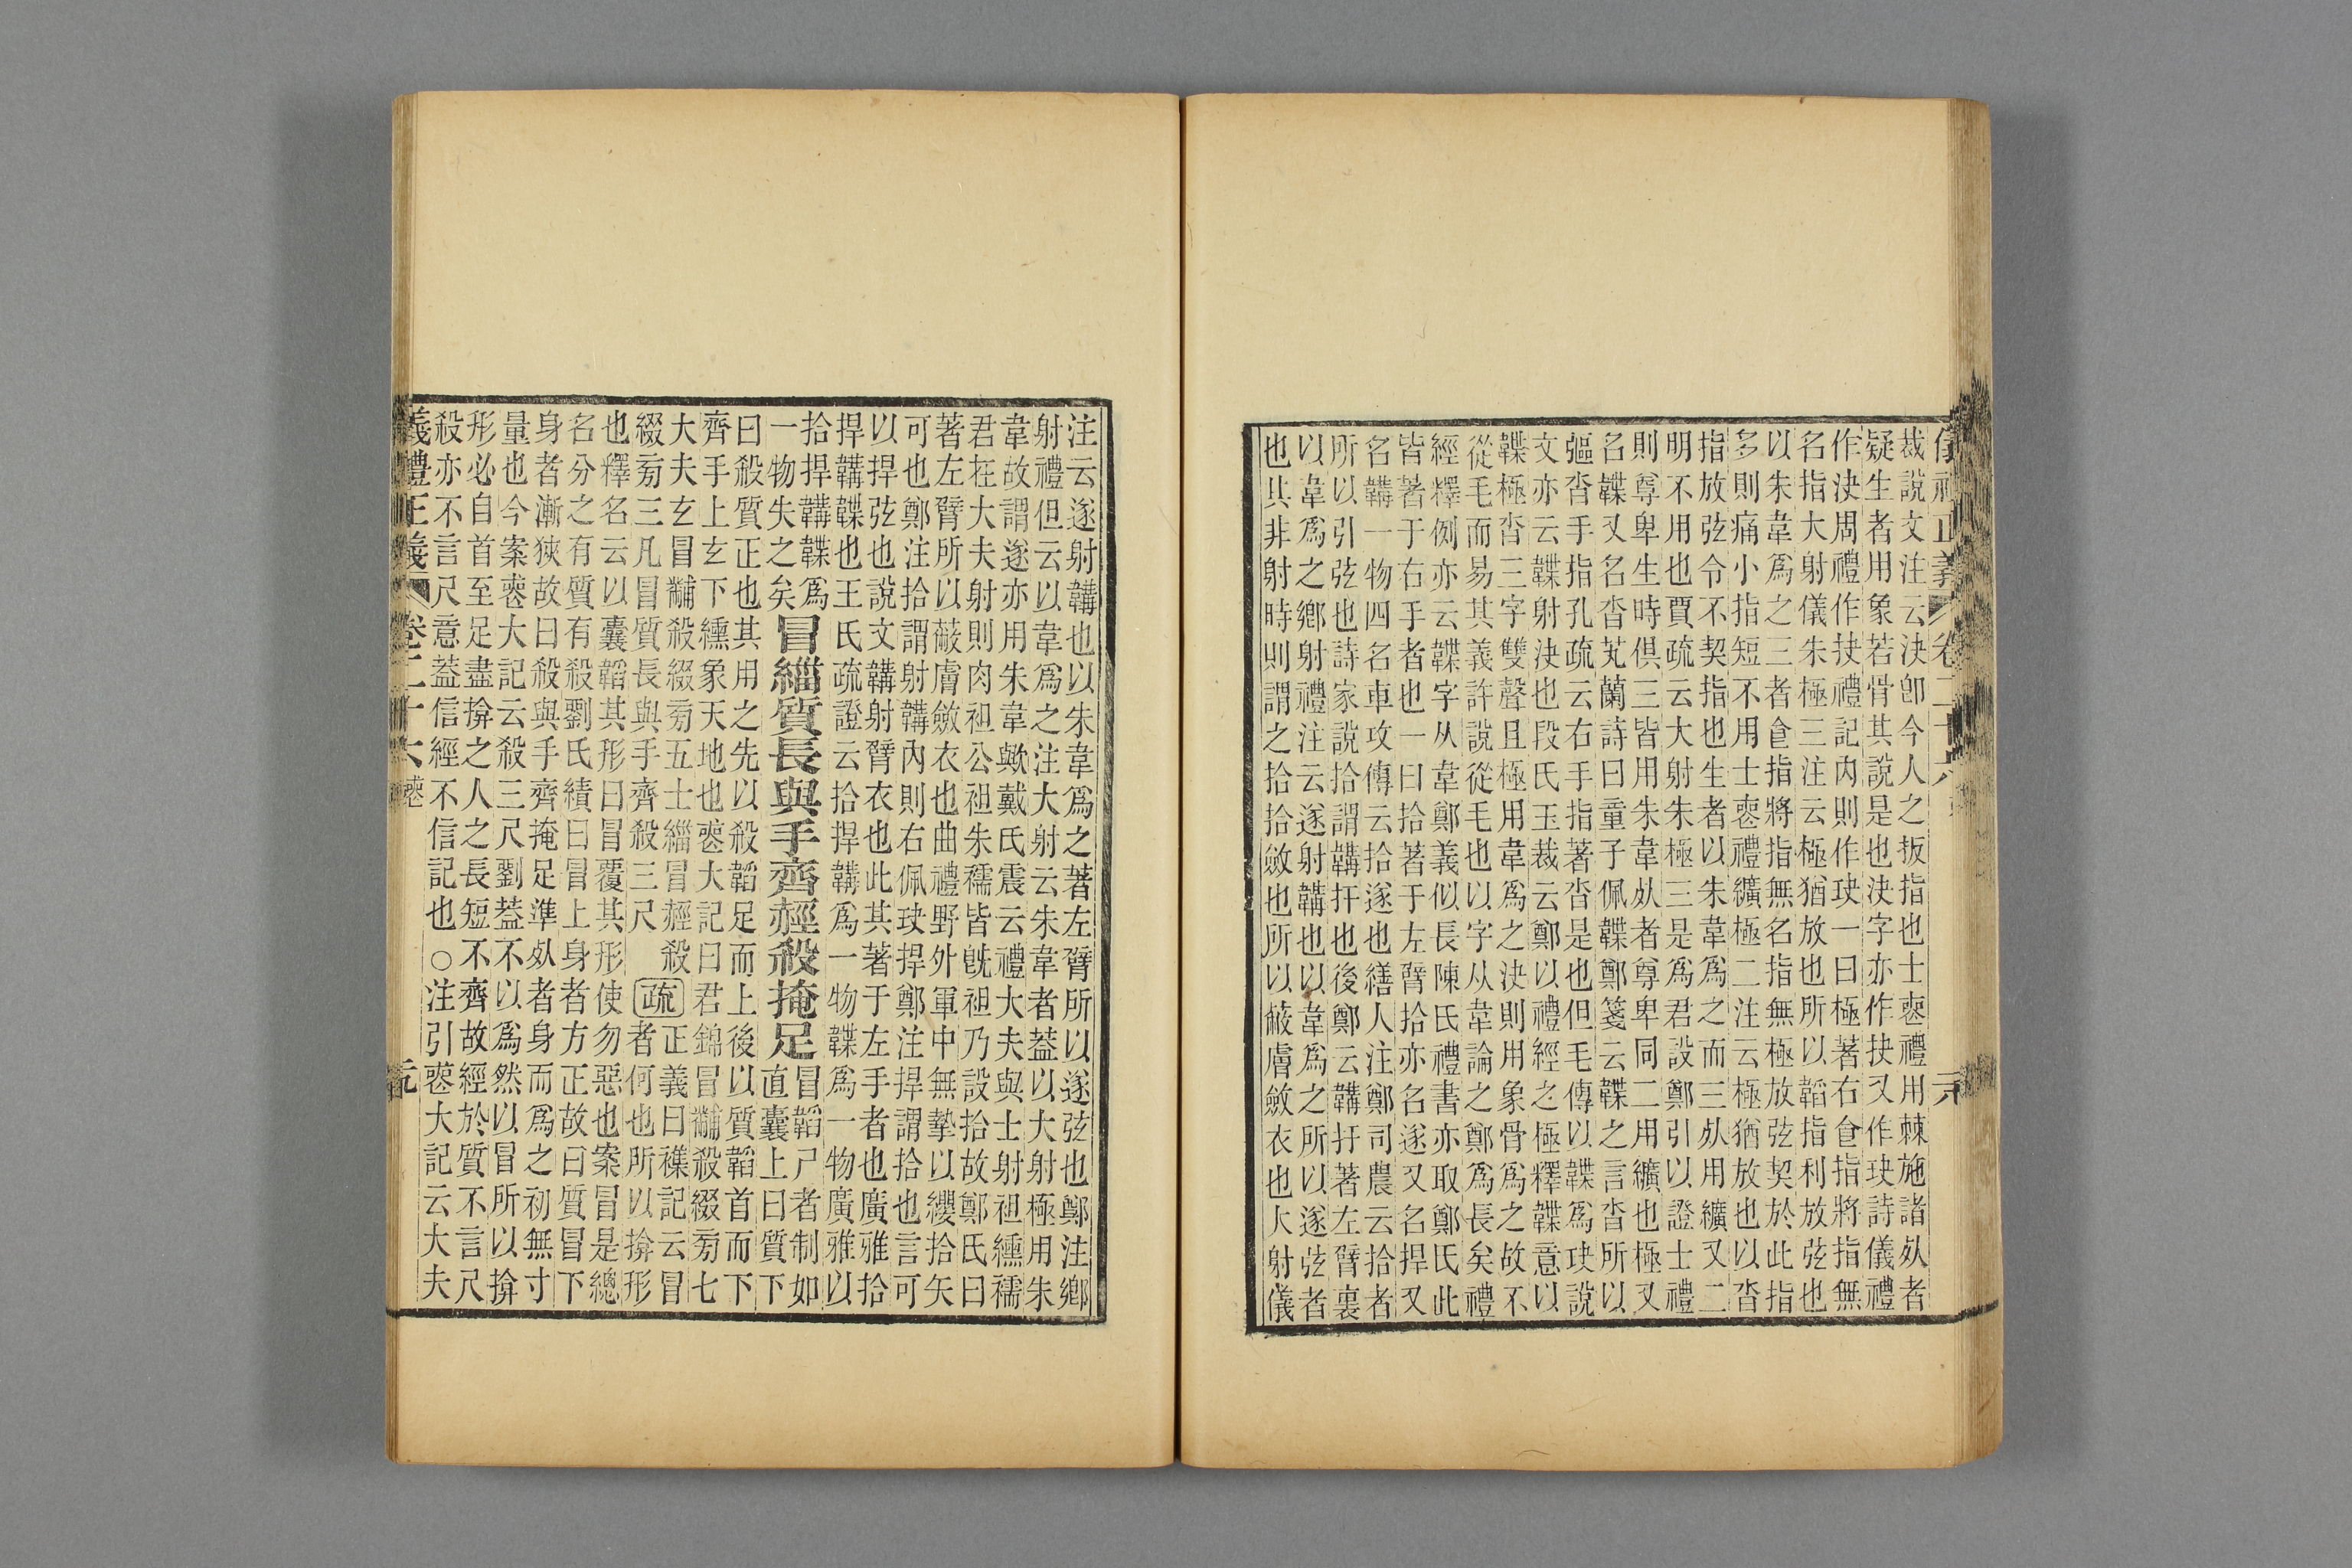 儀禮正義 卷二十六
裁說文注云決卽今人之扳指也士喪禮用棘施諸死者
疑生者用象若骨其說是也決字亦作抉又作玦詩儀禮
作決周禮作抉禮記內則作玦一曰極著右食指將指無
名指大射儀朱極三注云極猶放也所以韜指利放弦也
以朱韋爲之三者食指將指無名指無極放弦契於此指
多則痛小指短不用士喪禮纊極二注云極猶放也以沓
指放弦令不契指也生者以朱韋爲之而三死用纊又二
明不用也賈疏云大射朱極三是爲君設鄭引以證士禮
則尊卑生時俱三皆用朱韋死者尊卑同二用纊也極又
名韘又名沓芄蘭詩曰童子佩韘鄭箋云韘之言沓所以
彄沓手指孔疏云右手指著沓是也但毛傳以韘爲玦說
文亦云韘射決也段氏玉裁云鄭以禮經之極釋韘意以
韘極沓三字雙聲且極用韋爲之決則用象骨爲之故不
從毛而易其義許說從毛也以字从韋論之鄭爲長矣禮
經釋例亦云韘字从韋鄭義似長陳氏禮書亦取鄭氏此
皆著于右手者也一曰拾著于左臂拾亦名遂又名捍又
名韝一物四名車攻傳云拾遂也繕人注鄭司農云拾者
所以引弦也詩家說拾謂韝扞也後鄭云韝扞著左臂裏
以韋爲之鄉射禮注云遂射韝也以韋爲之所以遂弦者
也其非射時則謂之拾拾斂也所以蔽膚斂衣也大射儀
注云遂射韝也以朱韋爲之著左臂所以遂弦也鄭注鄉
射禮但云以韋爲之注大射云朱韋者蓋以大射極用朱
韋故謂遂亦用朱韋歟戴氏震云禮大夫與士射袒纁襦
君在大夫射則肉袒公袒朱襦皆旣袒乃設拾故鄭氏曰
著左臂所以蔽膚斂衣也曲禮野外軍中無摯以纓拾矢
可也鄭注拾謂射韝內則右佩玦捍鄭注捍謂拾也言可
以捍弦也說文韝射臂衣也此其著于左手者也廣雅拾
捍韝韘也王氏疏證云拾捍韝爲一物韘爲一物廣雅以
拾捍韝韘爲
一物失之矣
冒緇質長與手齊䞓殺掩足
冒韜尸者制如
直囊上曰質下
曰殺質正也其用之先以殺韜足而上後以質韜首而下
齊手上玄下纁象天地也喪大記曰君錦冒黼殺綴旁七
大夫玄冒黼殺綴旁五士緇冒䞓殺
綴旁三凡冒質長與手齊殺三尺
疏
正義曰襍記云冒
者何也所以揜形
也釋名云以囊韜其形曰冒覆其形使勿惡也案冒是總
名分之有質有殺劉氏績曰冒上身者方正故曰質冒下
身者漸狹故曰殺與手齊掩足準死者身而爲之初無寸
量也今案喪大記云殺三尺劉蓋不以爲然以冒所以揜
形必自首至足盡揜之人之長短不齊故經於質不言尺
殺亦不言尺意蓋信經不信記也○注引喪大記云大夫
義禮正義 卷二十六 喪